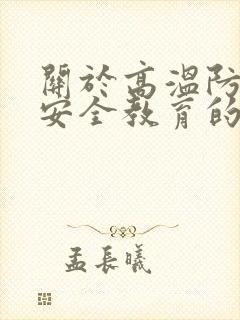 關於高溫防
安全教育的
孟長曦